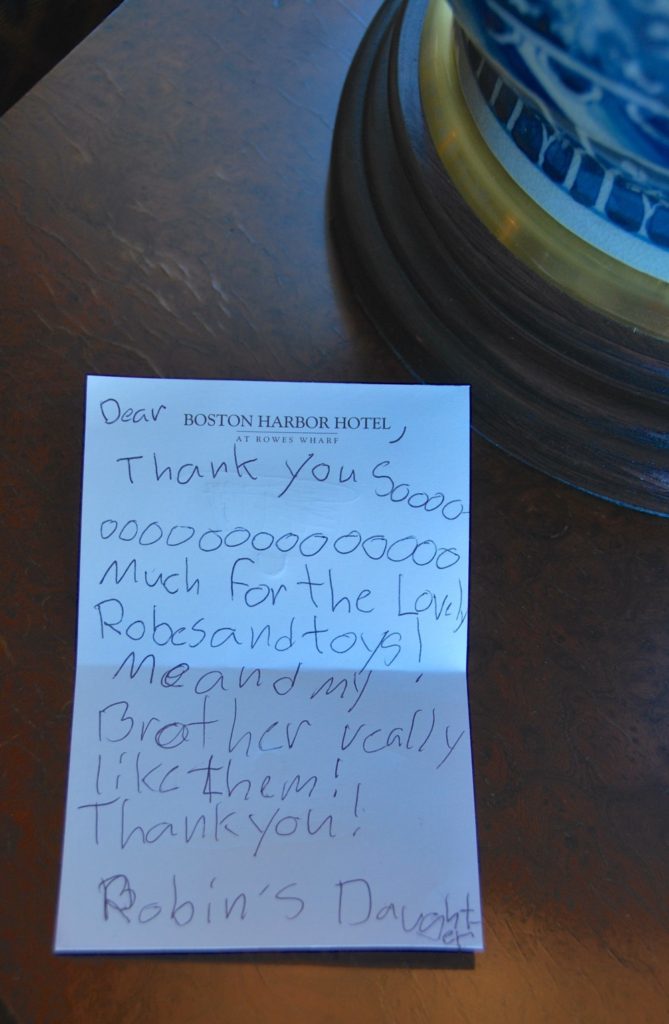 Dear BOSTON HARBOR HOTEL,
AT ROWES WHARF
Thank you Sooooo-
oooooooooooooo
Much for the Lovely
Robes and toys!
Me and my
Brother really
like them!
Thank you!
Robin's Daught-
er